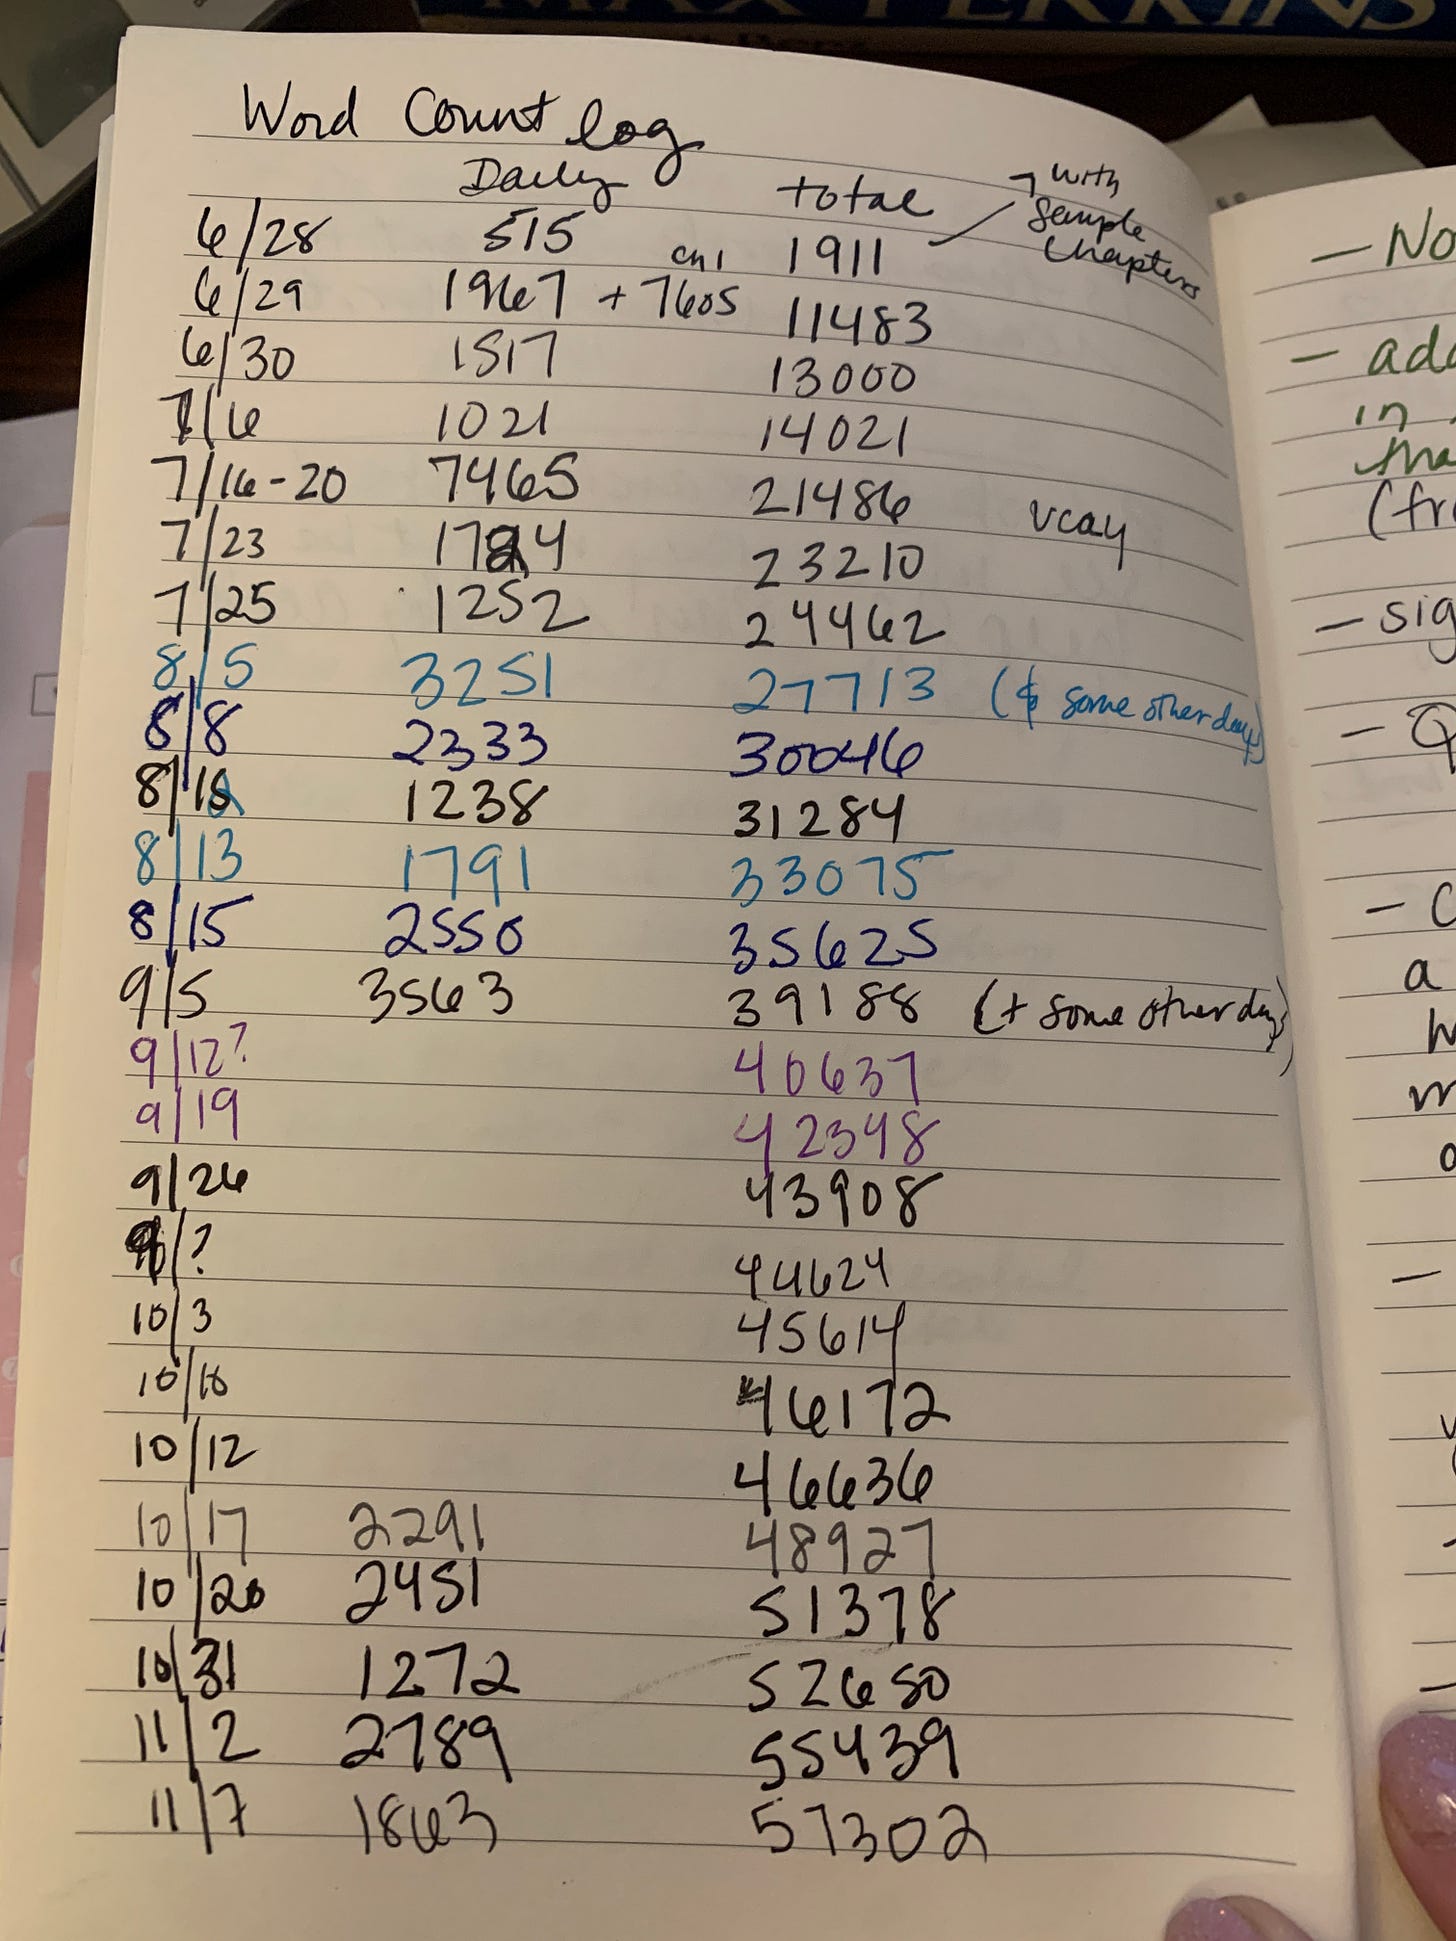 MAX PERKINS
Word Count log
Daily total → with
sample
chapters
6/28 515 1911
6/29 1967 + ch 1 7605 11483
6/30 1517 13000
7/6 1021 14021
7/16-20 7465 21486 vcay
7/23 1724 23210
7/25 1252 24462
8/5 3251 27713 (& some other days)
8/8 2333 30046
8/ 1238 31284
8/13 1791 33075
8/15 2550 35625
9/5 3563 39188 (+ some other days)
9/12? 40637
9/19 42398
9/26 43908
/? 44624
10/3 45614
10/10 46172
10/12 46636
10/17 2291 48927
10/20 2451 51378
10/31 1272 52650
11/2 2789 55439
11/7 1863 57302
— No
— add
in
tha
(fr
— sig
— Q
— C
a